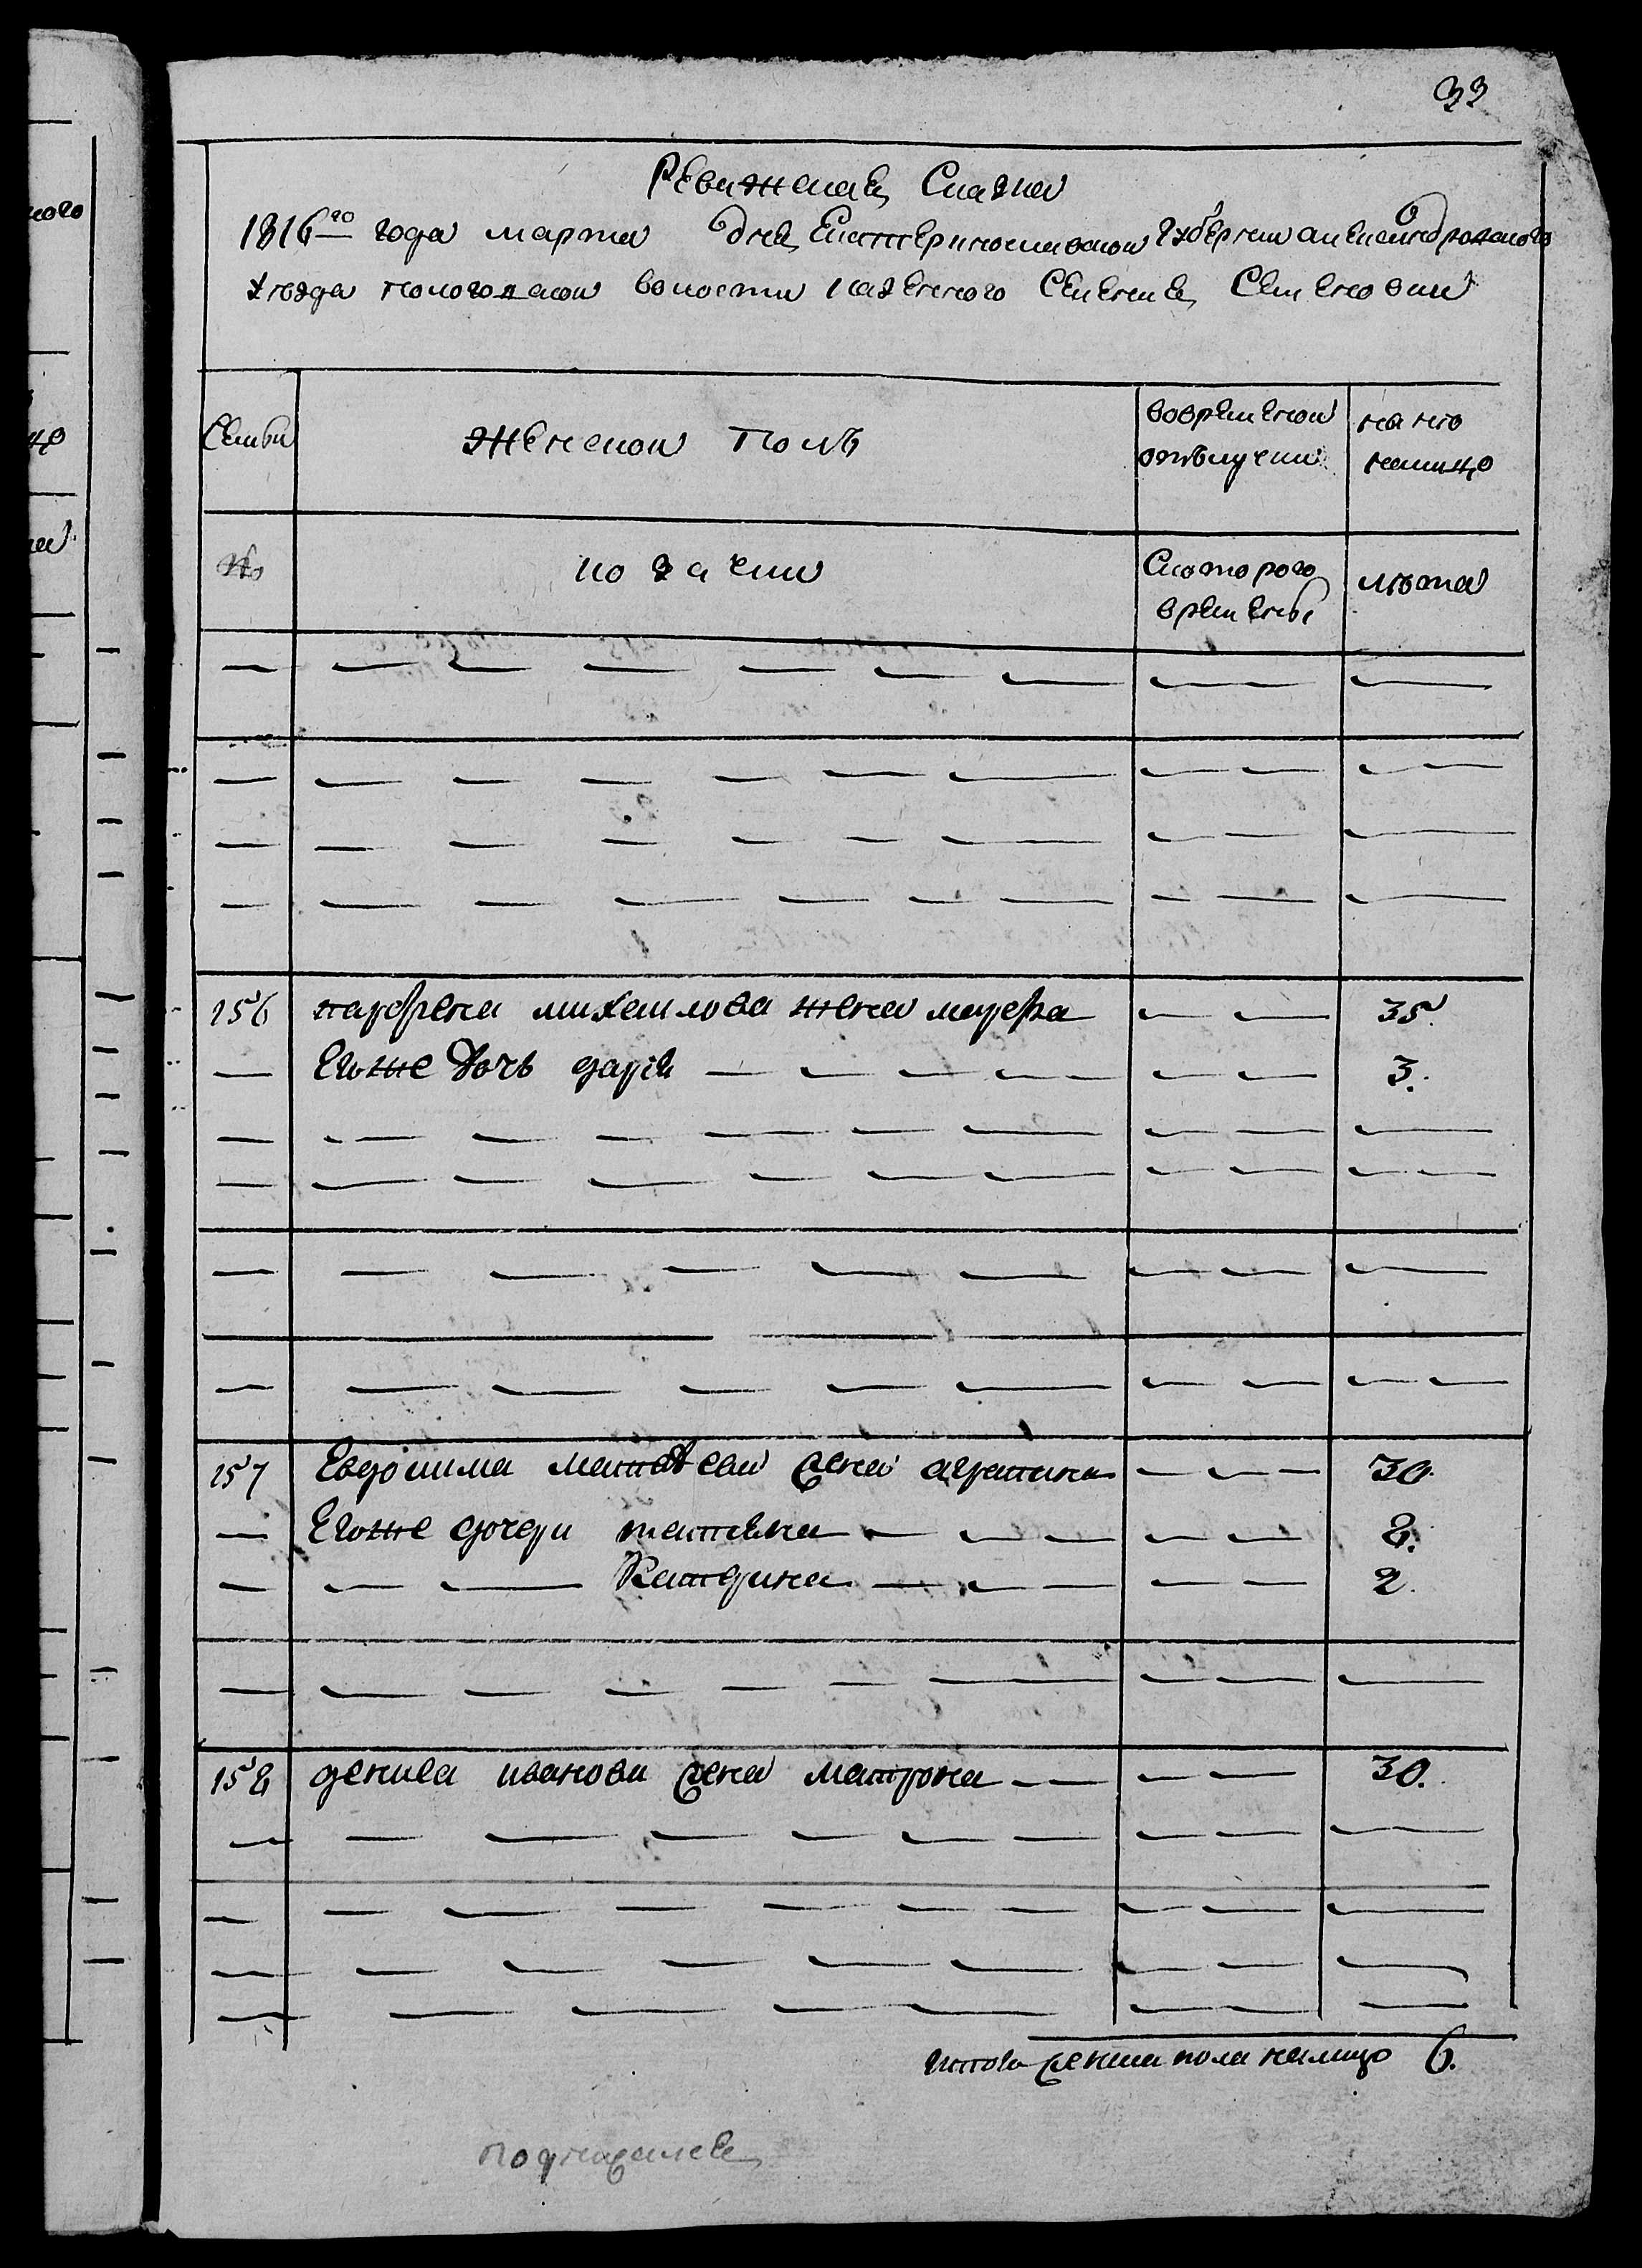 33
Ревижская Сказка
1816го года марта дня Екатеринославской Губернии александровского
уезда пологовской волости казенного Селения Семеновки
Семьи
Женской Полъ
вовременной
отълучки
на но
налицо
№
по казании
Скоторого
времены
лета
156 парфена михаилова жена марфа 35
Егоже дочь дарiя 3.
157 Евдокима матвеева жена аграпина 30
Егоже дочери татияна 8.
Катерина 2.
158 дениса иванова жена матрона 30.
Итого женска пола налицо 6.